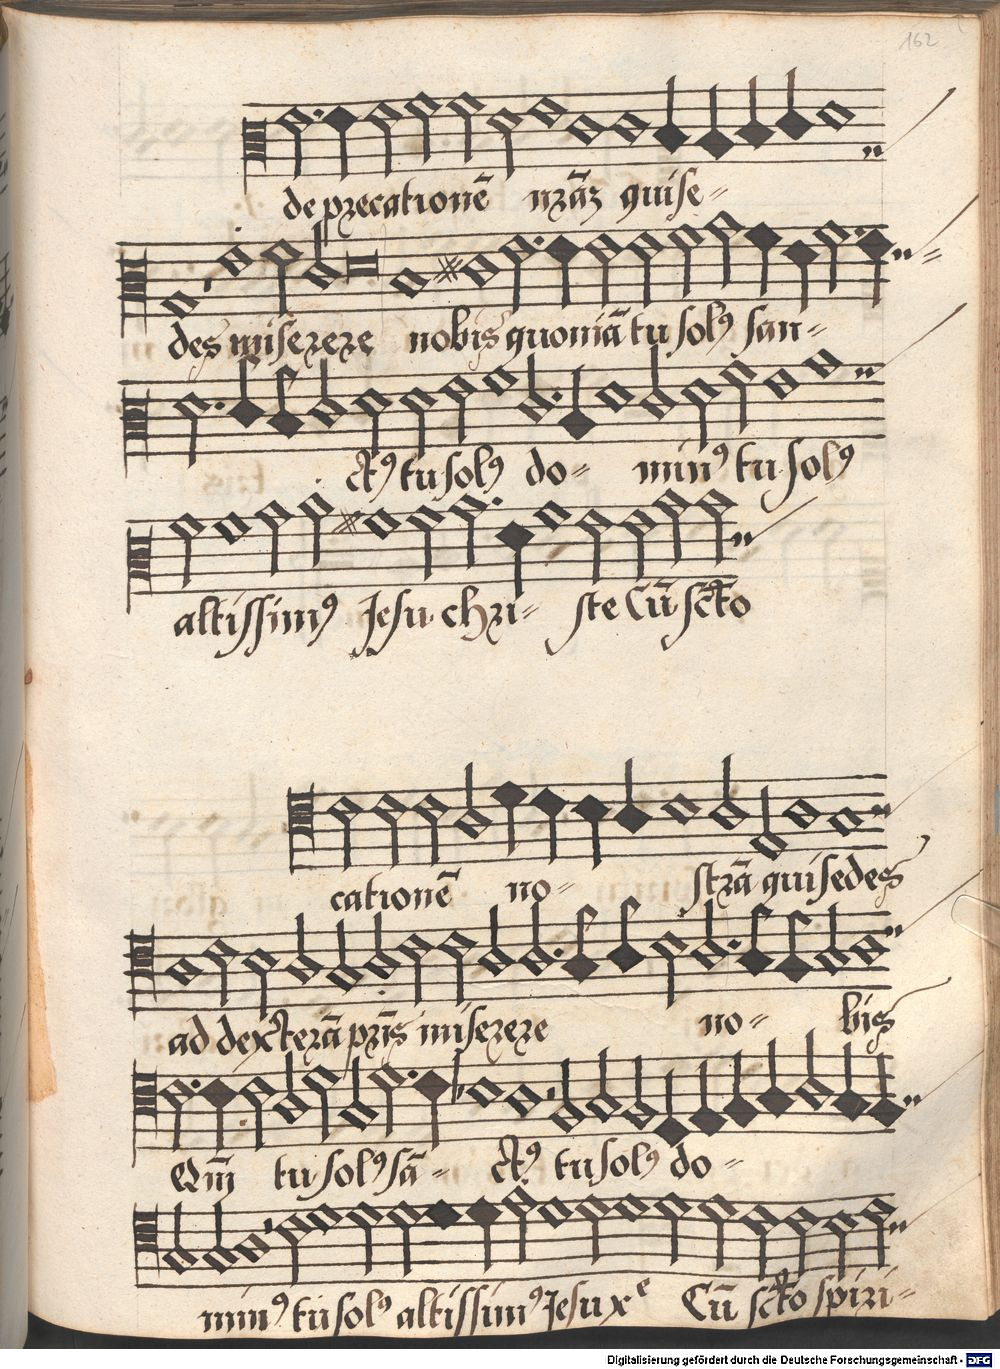 162
deprecationē nrāꝫ qui se⸗
des miserere nobis quoniā tu solꝰ san⸗
ctꝰ tu solꝰ do⸗ minꝰ tu solꝰ
altissimꝰ Jesu chri⸗ ste Cū scto
cationē no⸗ strā qui sedes
ad dexterā pris miserere no⸗ bis
Qm tu solꝰ sā⸗ ctꝰ tu solꝰ do⸗
minꝰ tu solꝰ altissimꝰ Jesu xe Cū scto spiri⸗
Digitalisierung gefördert durch die Deutsche Forschungsgemeinschaft - DFG